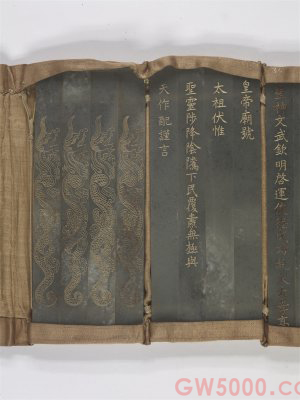 文武欽明啓運俊德成功統天大孝高
皇帝廟號
太祖伏惟
聖靈陟降陰隲下民覆燾無極與
天作配謹言
GW5000.co